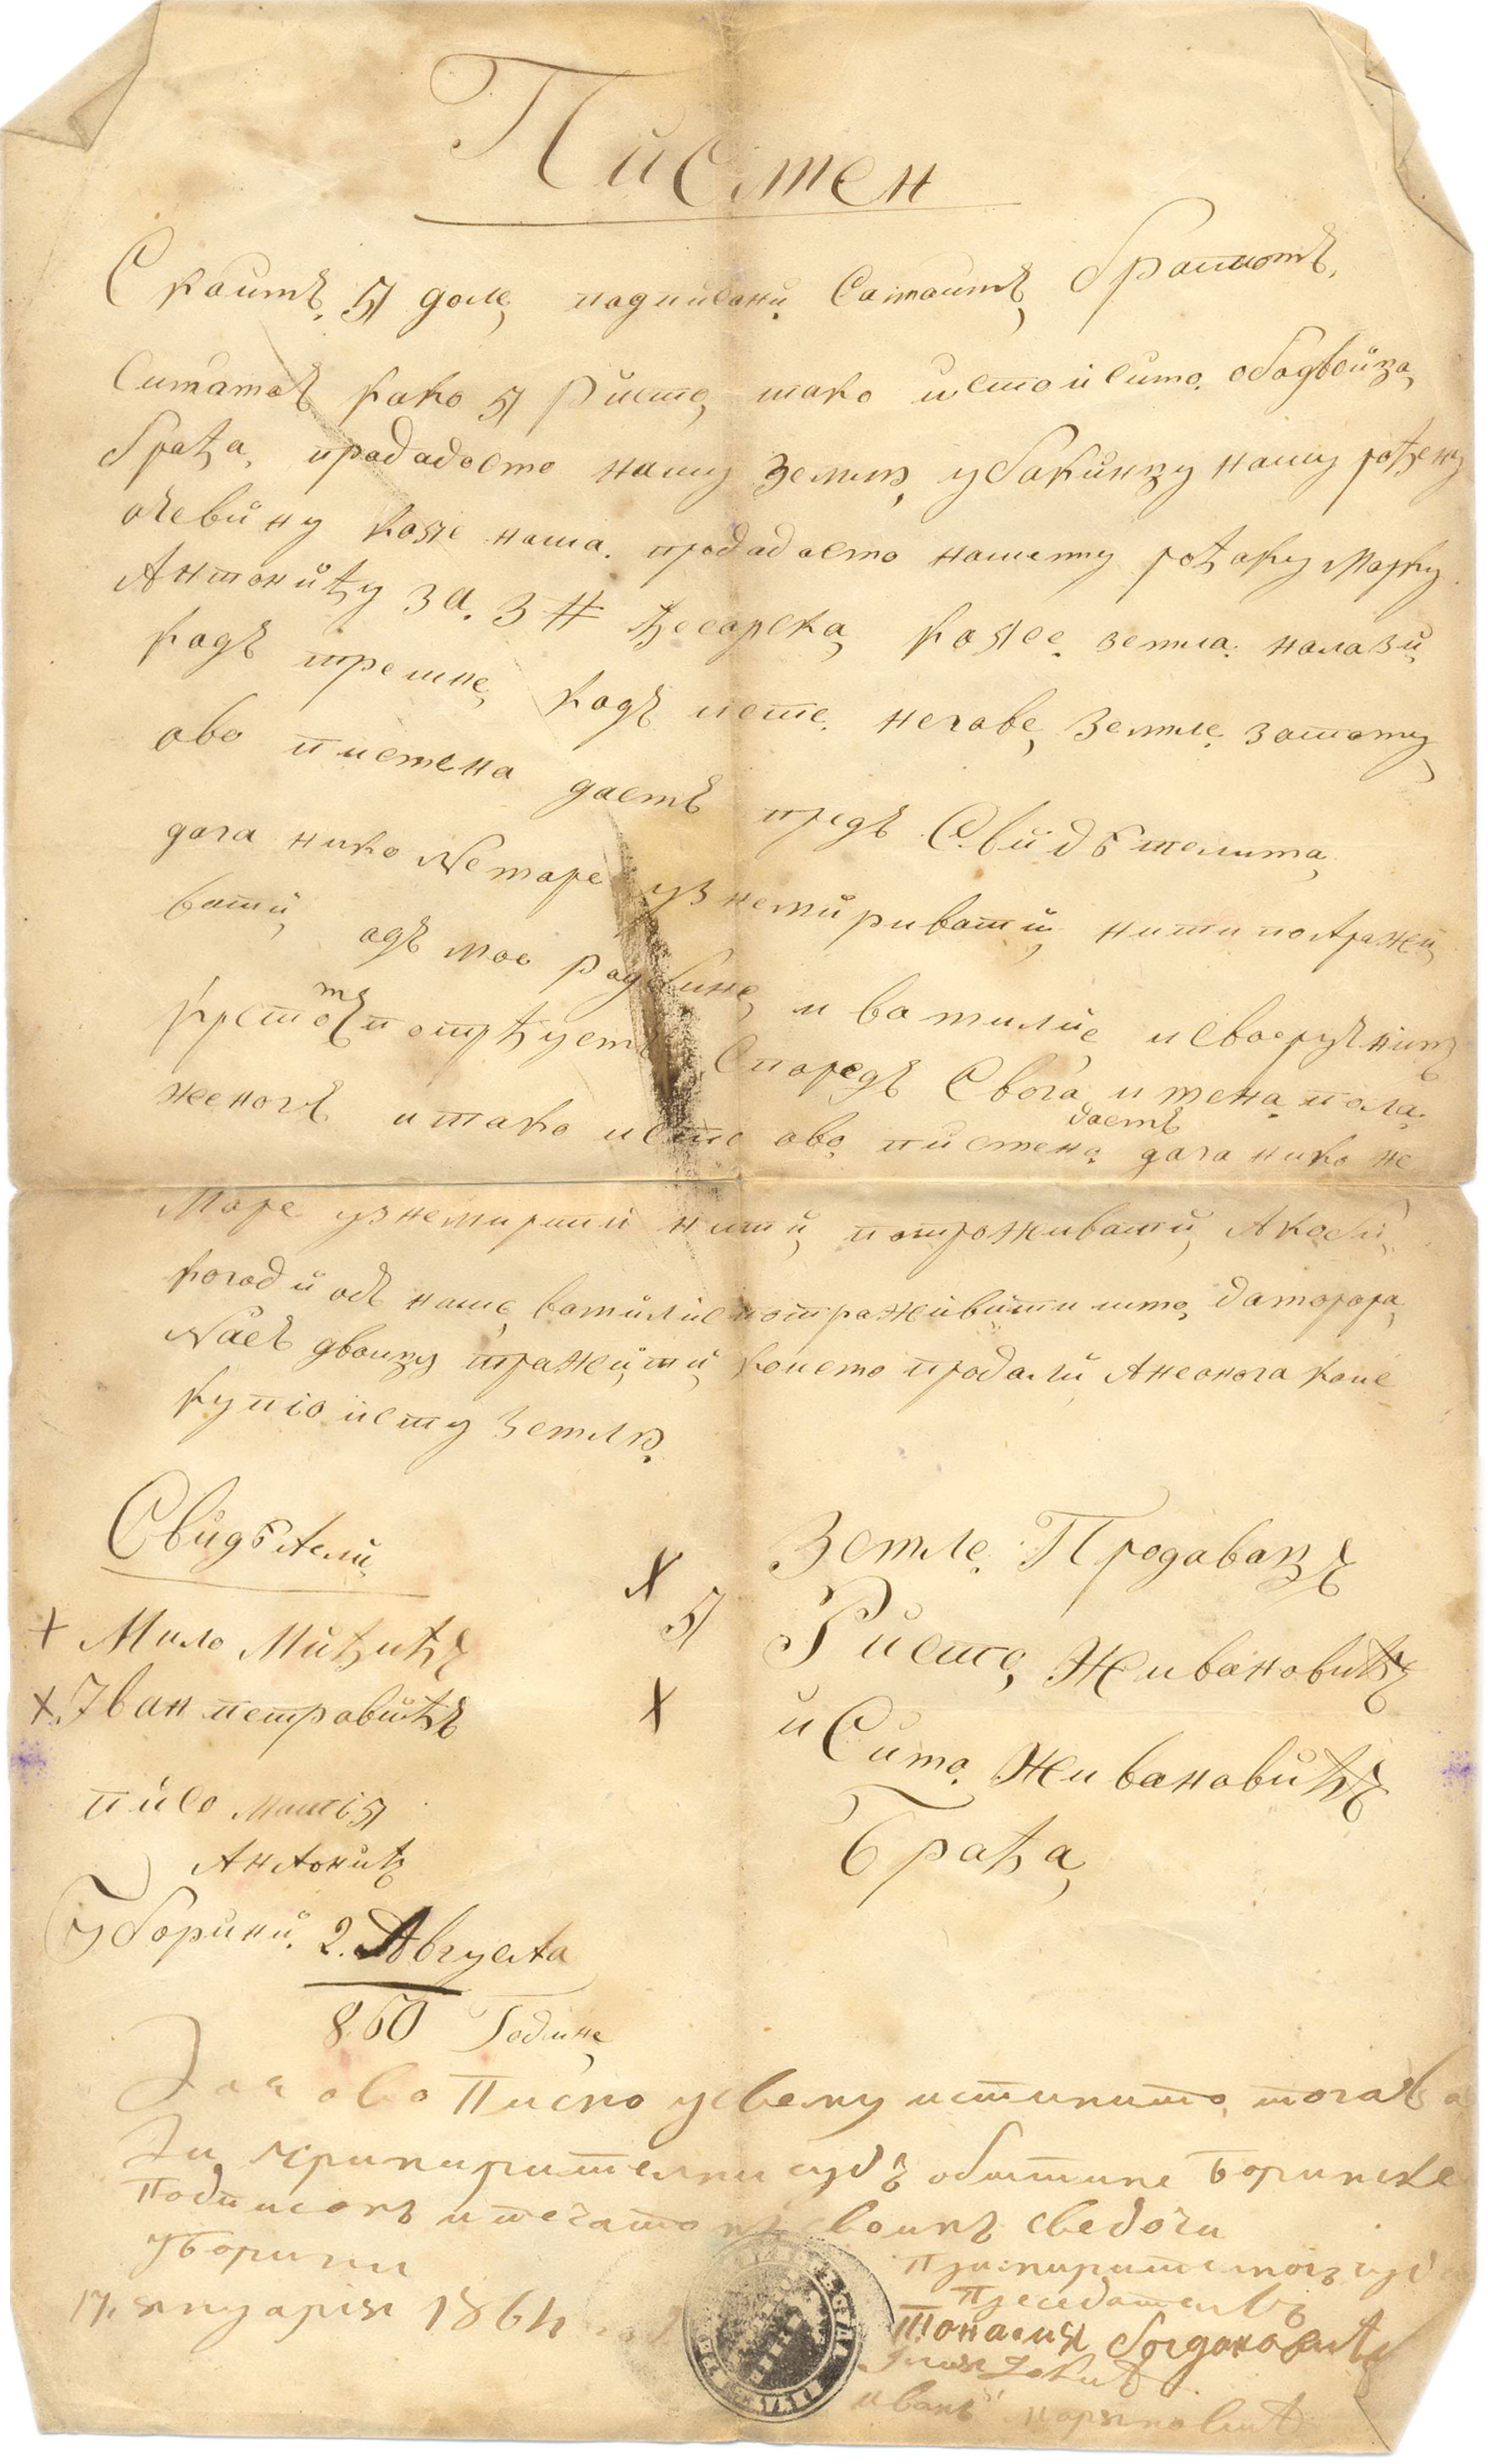 Писмен
С коимъ я доле подписани Са моимъ братомъ
Симомъ како я Ристо, тако исто и симо обадвоица
браћа, продадосмо нашу землю, у бакинцу нашу рођену
очевину кояе наша продадосмо нашему рођаку Марку
Антонићу за 3 # Цесарска, кояе се земла налази
кадъ трешне, кадъ исте негове, Земле затому
ово писмена даемъ предъ Свидѣтелима
дага нико Nеморе узнемиривати, нити потражи
вати, одъ мое родбине и вамилие и своеручнимъ
крстомъ потврђуемъ Споредъ Свога имена пола
женогъ и тако исто ово писмено даемъ дага нико не
Море узнемирити нити, потроживати, Акоби
когоди одъ наше вамилие потраживити што, да морора
Nасъ двоицу тражити, коисмо продали Анеонога кои е
купіо исту Землю.
Свидѣтели
+ Мило Мићићъ
х Іван петровићъ
писо Матія
Антонић
У борини 2. Августа
860 Године
Земле Продавацъ
х я Ристо, Живановићъ
х и Симо Живановићъ
Браћа
ово Писмо у свему истинито
примирителни судъ обштине Боринске
Подписомъ и печатомъ своимъ сведочи
у Борини
17. януарія 1864
Примирителногъ суда
Председатель
Танасия Богдановић
иванъ марянковић